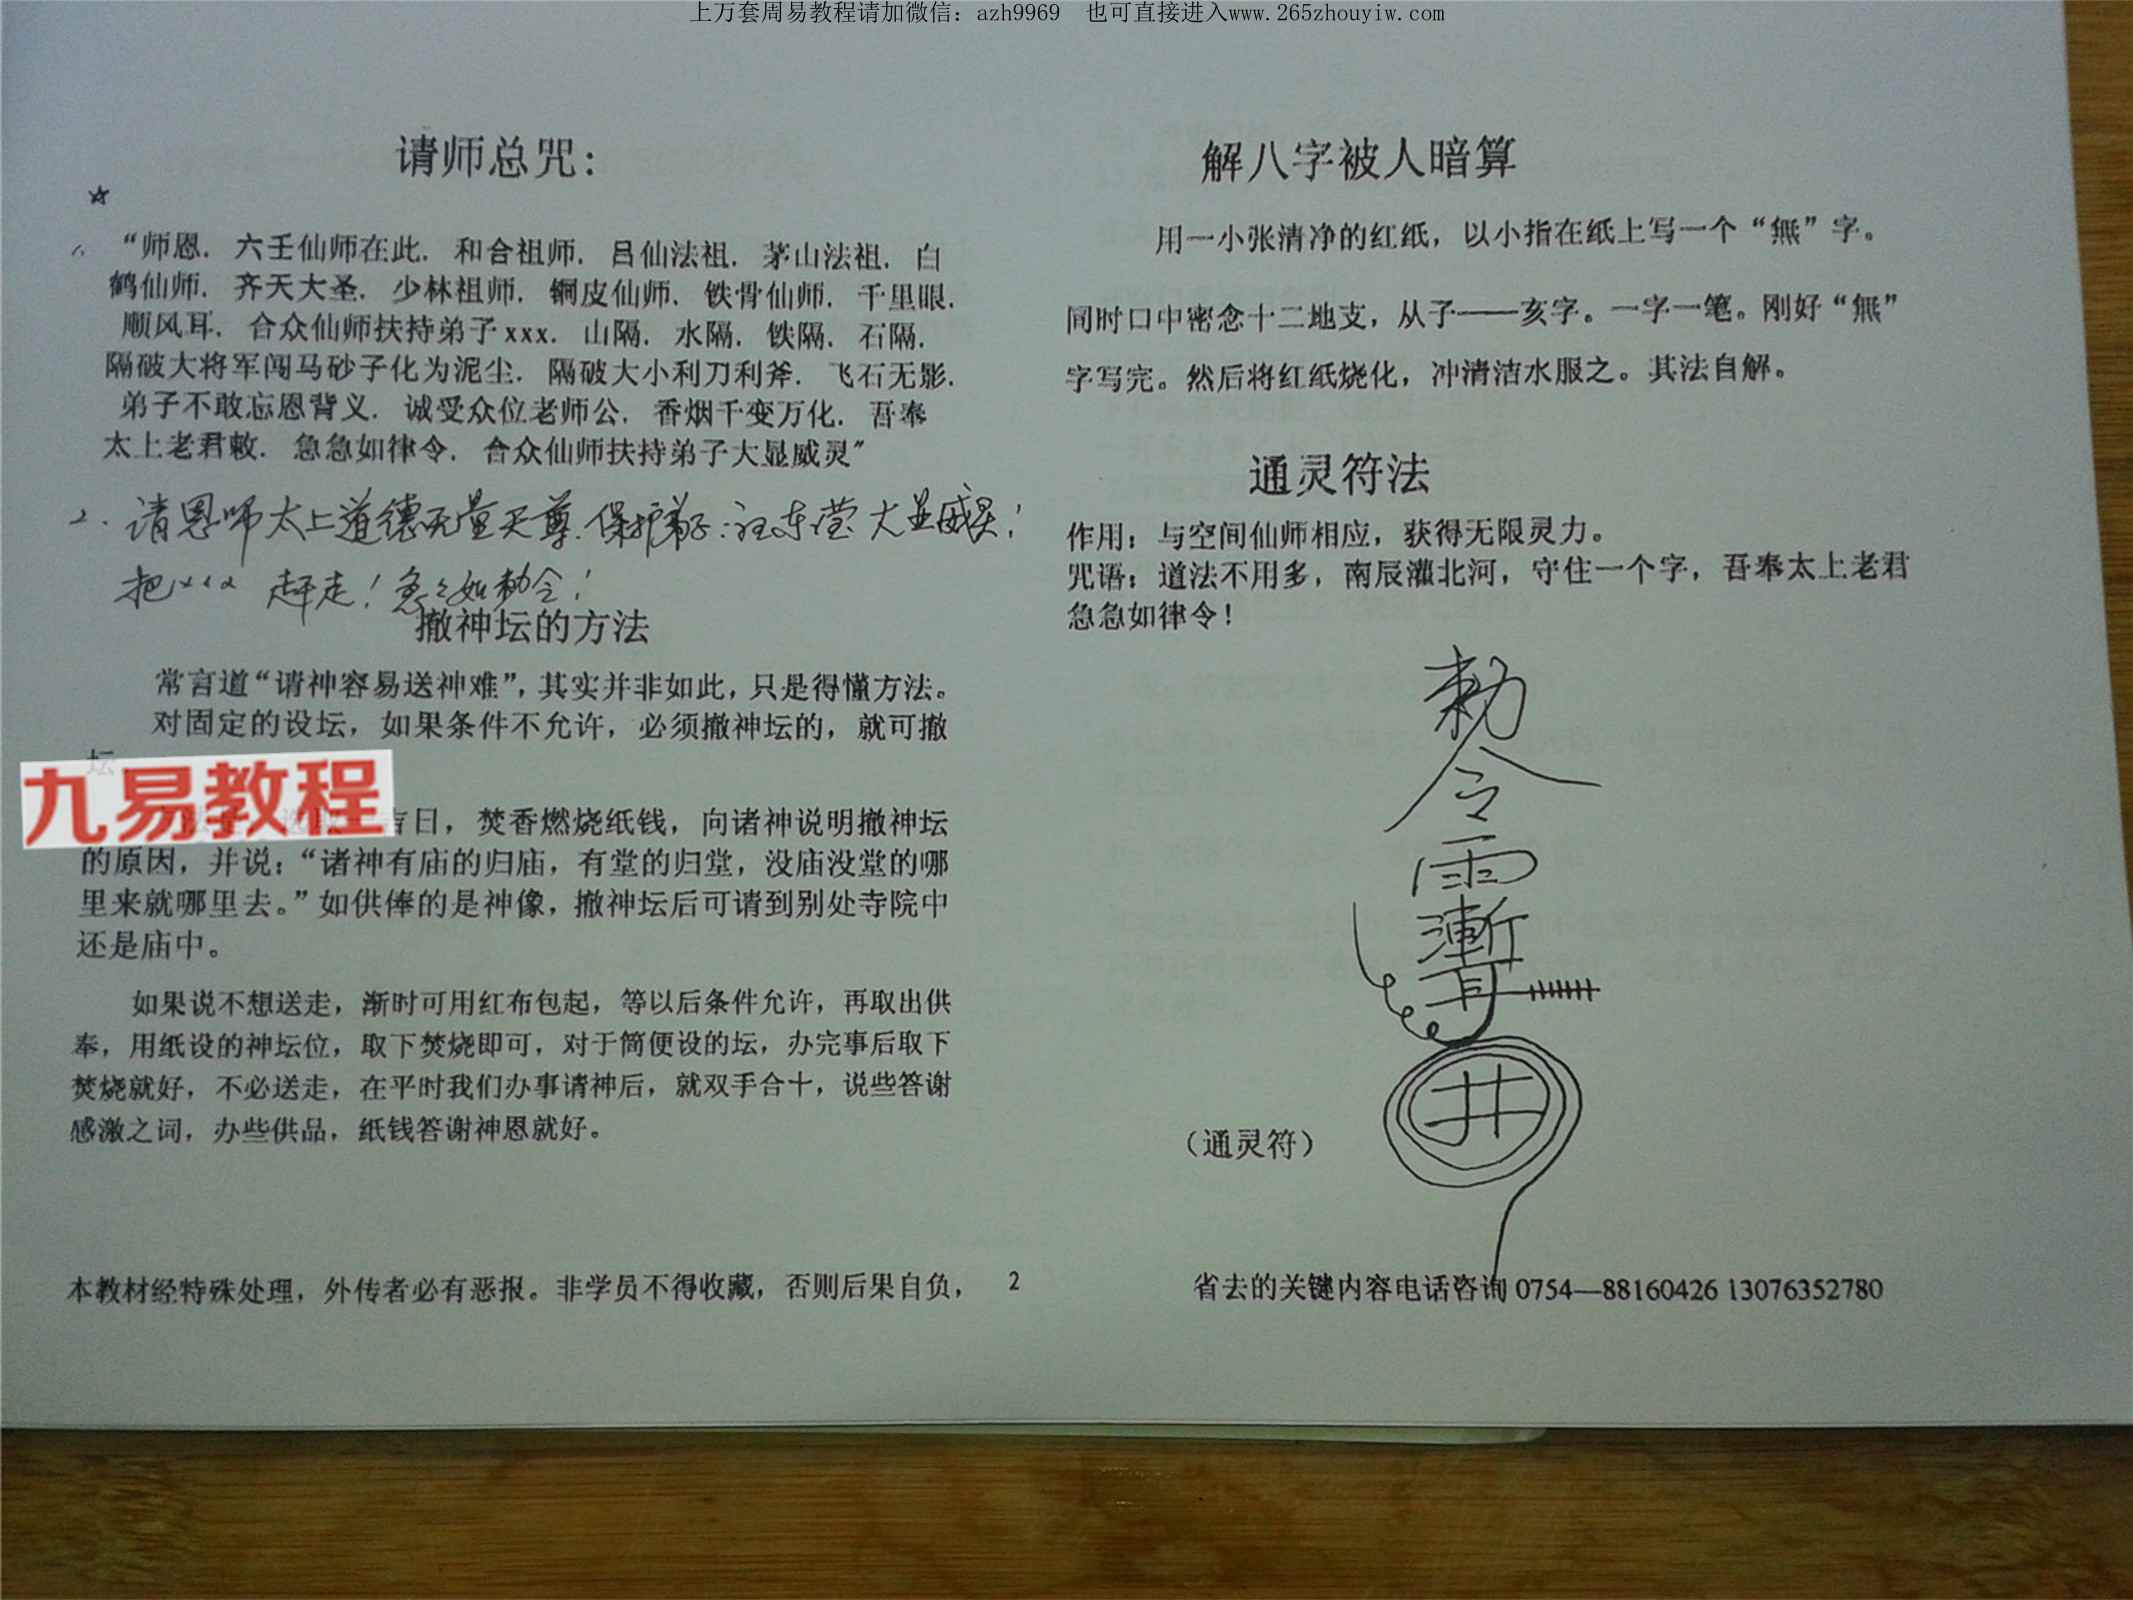 上万套周易教程请加微信：azh9969　也可直接进入www.265zhouyiw.com
请师总咒：
“师恩．六壬仙师在此．和合祖师．吕仙法祖．茅山法祖．白
鹤仙师．齐天大圣．少林祖师．铜皮仙师．铁骨仙师．千里眼．
顺风耳．合众仙师扶持弟子xxx．山隔．水隔．铁隔．石隔．
隔破大将军闯马砂子化为泥尘．隔破大小利刀利斧．飞石无影．
弟子不敢忘恩背义．诚受众位老师公．香烟千变万化．吾奉
太上老君敕．急急如律令．合众仙师扶持弟子大显威灵”
2．请恩师太上道德无量天尊．保护弟子：汪东莹大显威灵！
把xxx 赶走！急急如勅令！
撤神坛的方法
常言道“请神容易送神难”，其实并非如此，只是得懂方法。
对固定的设坛，如果条件不允许，必须撤神坛的，就可撤
坛
九易教程
吉日，焚香燃烧纸钱，向诸神说明撤神坛
的原因，并说：“诸神有庙的归庙，有堂的归堂，没庙没堂的哪
里来就哪里去。”如供俸的是神像，撤神坛后可请到别处寺院中
还是庙中。
如果说不想送走，渐时可用红布包起，等以后条件允许，再取出供
奉，用纸设的神坛位，取下焚烧即可，对于简便设的坛，办完事后取下
焚烧就好，不必送走，在平时我们办事请神后，就双手合十，说些答谢
感激之词，办些供品，纸钱答谢神恩就好。
本教材经特殊处理，外传者必有恶报。非学员不得收藏，否则后果自负，
2
解八字被人暗算
用一小张清净的红纸，以小指在纸上写一个“無”字。
同时口中密念十二地支，从子——亥字。一字一笔。刚好“無”
字写完。然后将红纸烧化，冲清洁水服之。其法自解。
通灵符法
作用：与空间仙师相应，获得无限灵力。
咒语：道法不用多，南辰灌北河，守住一个字，吾奉太上老君
急急如律令！
勅
令
雨
漸
耳
井
（通灵符）
省去的关键内容电话咨询 0754—88160426 13076352780